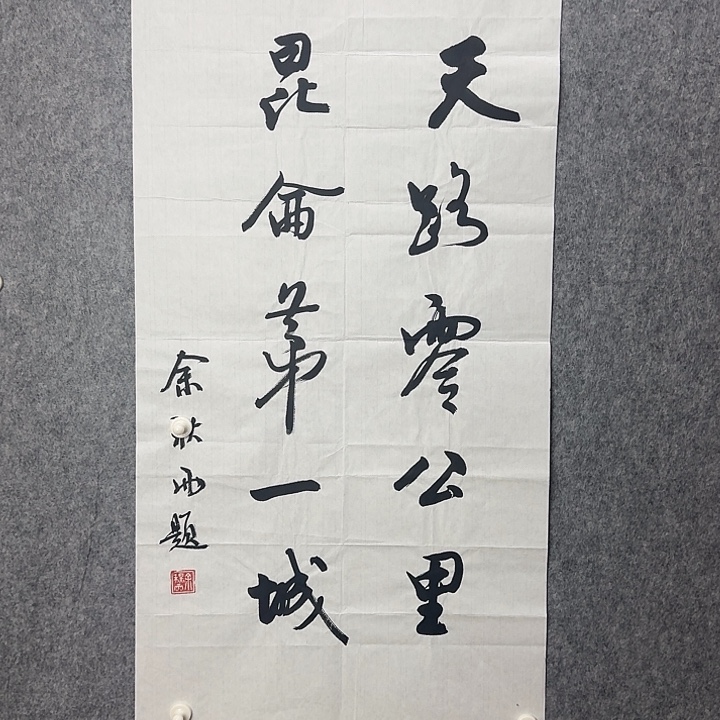 天路零公里
昆侖第一城
余秋雨題